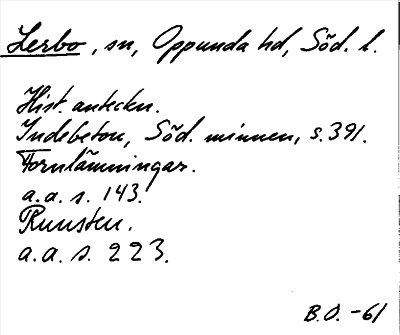 Lerbo, sn, Oppunda hd, Söd. l.
Hist. anteckn.
Indebetou, Söd. minnen, s. 391.
Fornlämningar.
a.a. s. 143.
Runsten.
a.a. s. 223.
B.O. -61